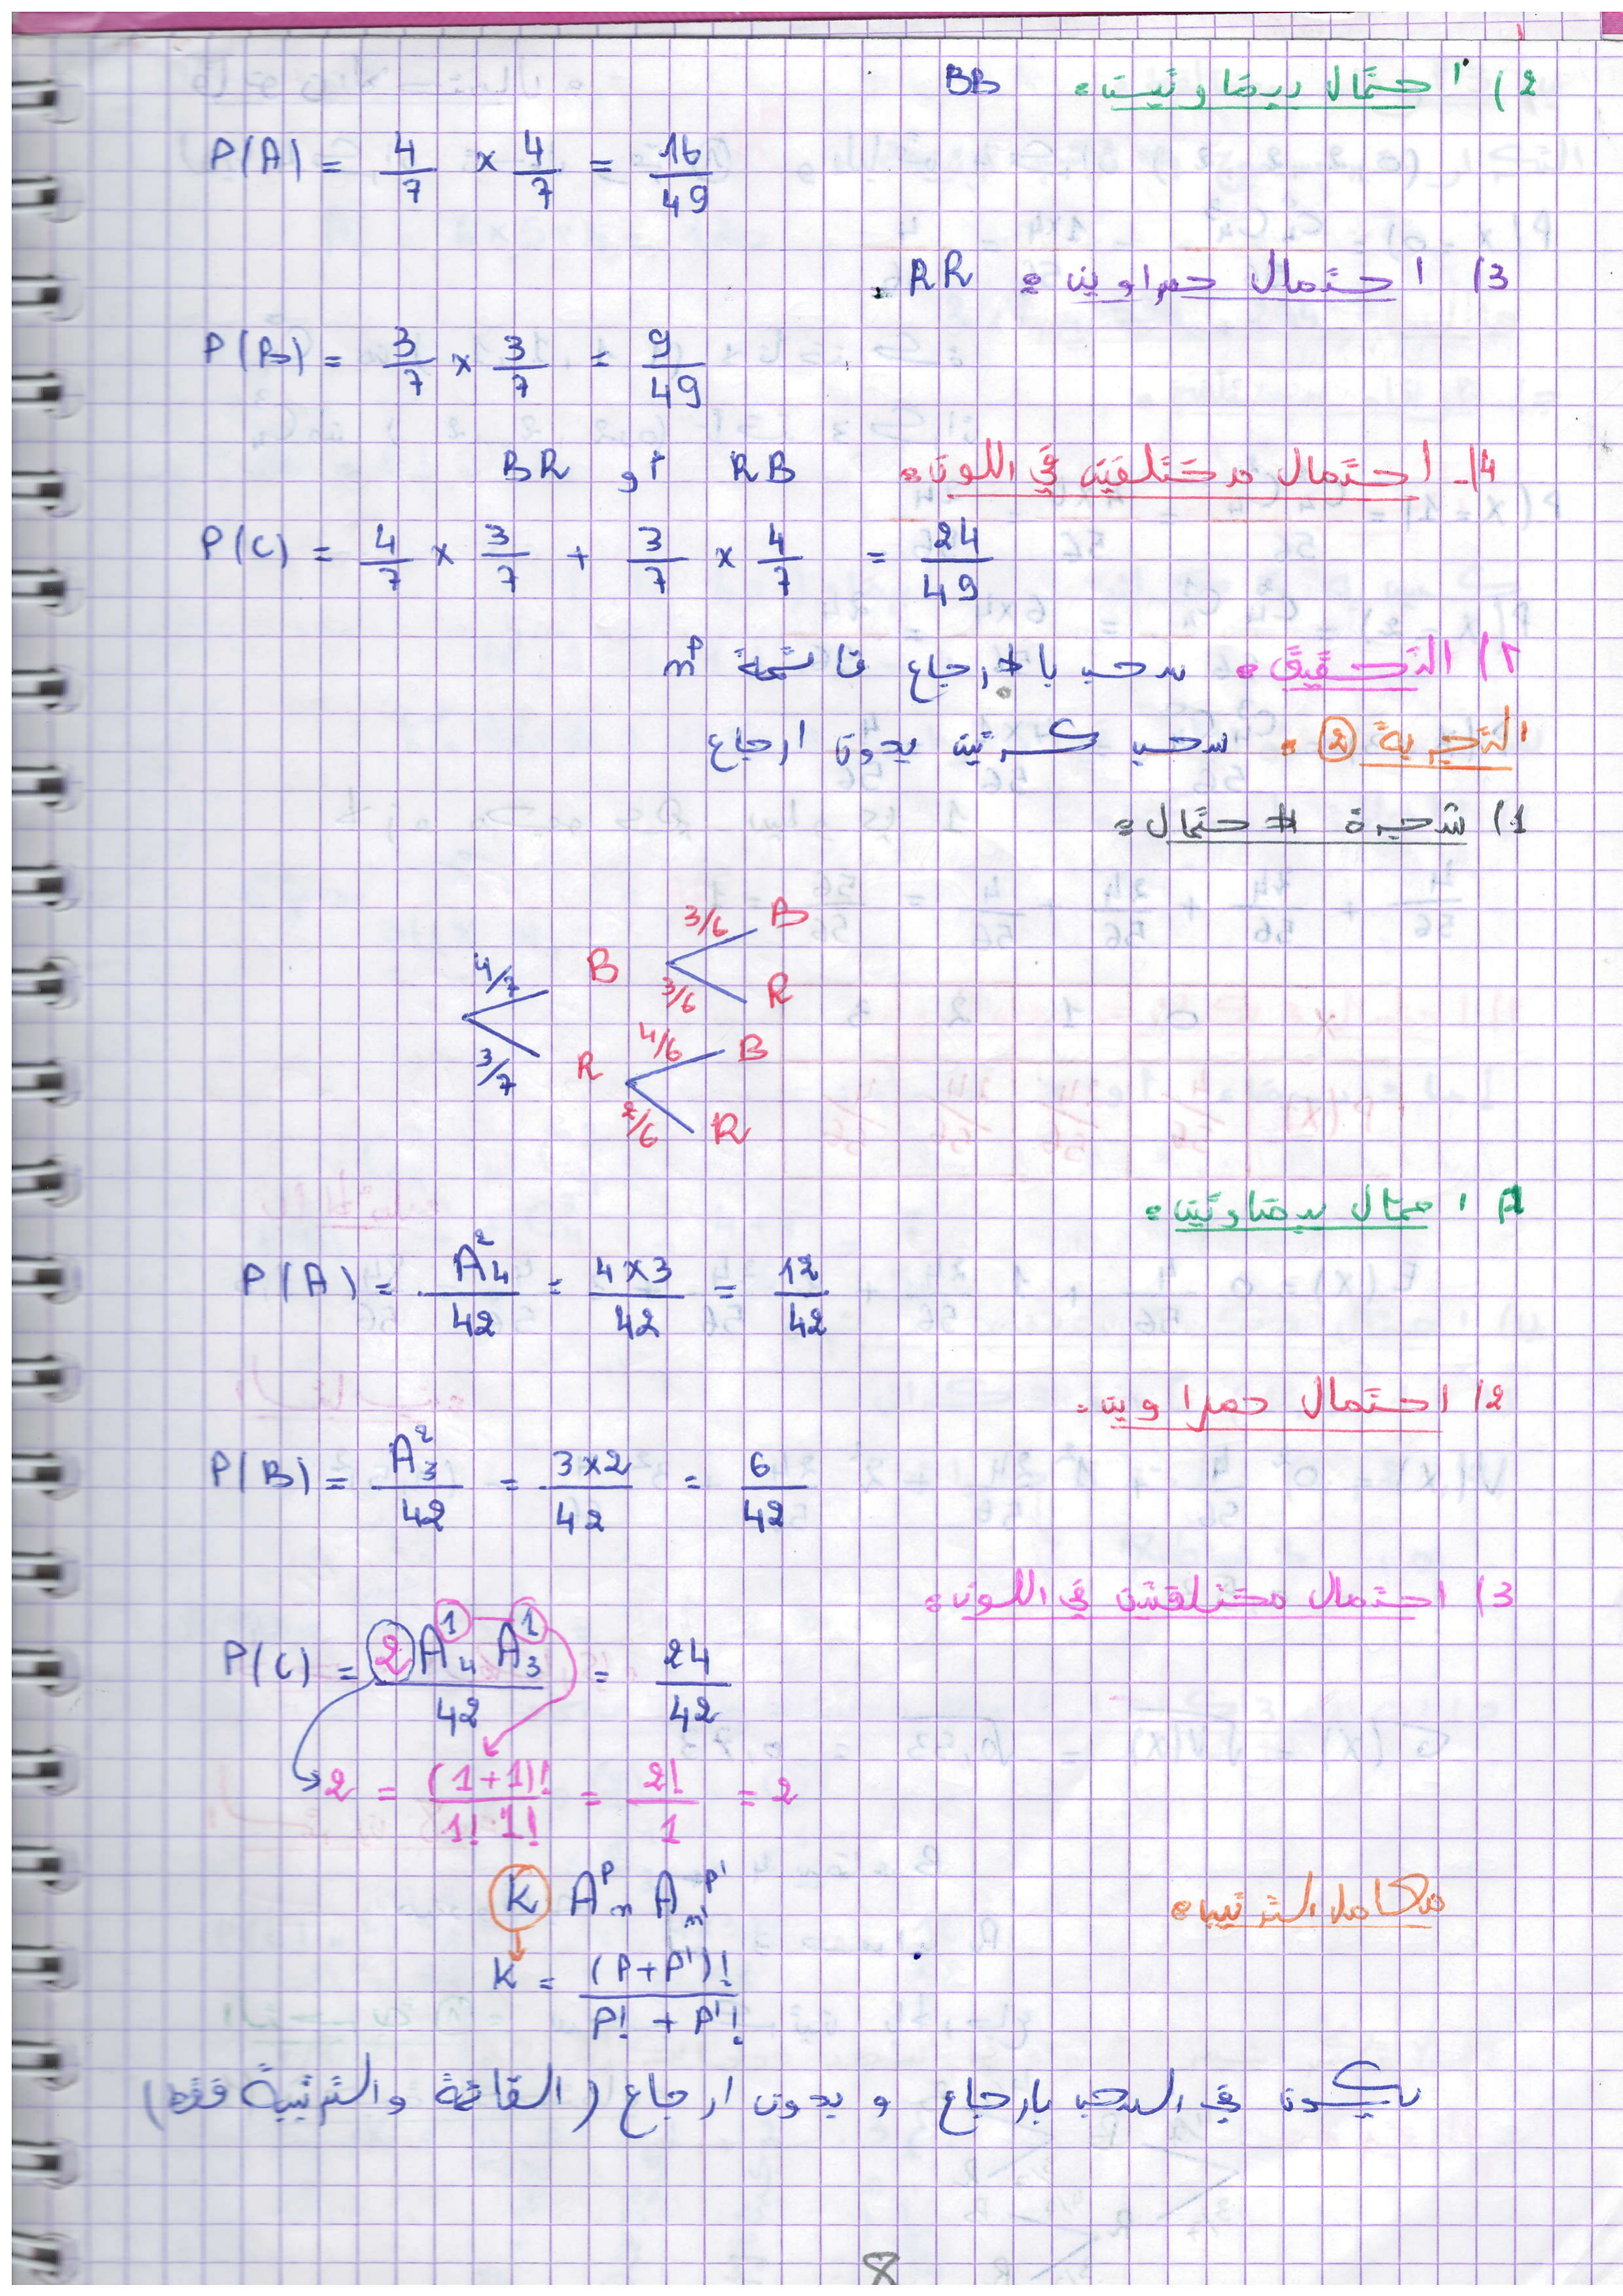 2) احتمال بيضاوتين: BB
P(A) = 4/7 × 4/7 = 16/49
3) احتمال حمراوين: RR
P(B) = 3/7 × 3/7 = 9/49
4) احتمال مختلفتين في اللون: RB أو BR
P(C) = 4/7 × 3/7 + 3/7 × 4/7 = 24/49
التحقيق: سحب بإرجاع قائمة n^p
التجربة ②: سحب كرتين بدون ارجاع
1) شجرة الاحتمال:
4/7 B 3/6 B
3/6 R
3/7 R 4/6 B
2/6 R
احتمال بيضاوتين:
P(A) = A₄²/42 = 4×3/42 = 12/42
2) احتمال حمراوين:
P(B) = A₃²/42 = 3×2/42 = 6/42
3) احتمال مختلفتين في اللون:
P(C) = 2 A₄¹ A₃¹/42 = 24/42
2 = (1+1)!/1! 1! = 2!/1 = 2
معامل الترتيب:
K A_n^P A_n'^P'
K = (P+P')!/P! + P'!
يكون في السحب بارجاع و بدون ارجاع (القائمة والترتيبة فقط)
8